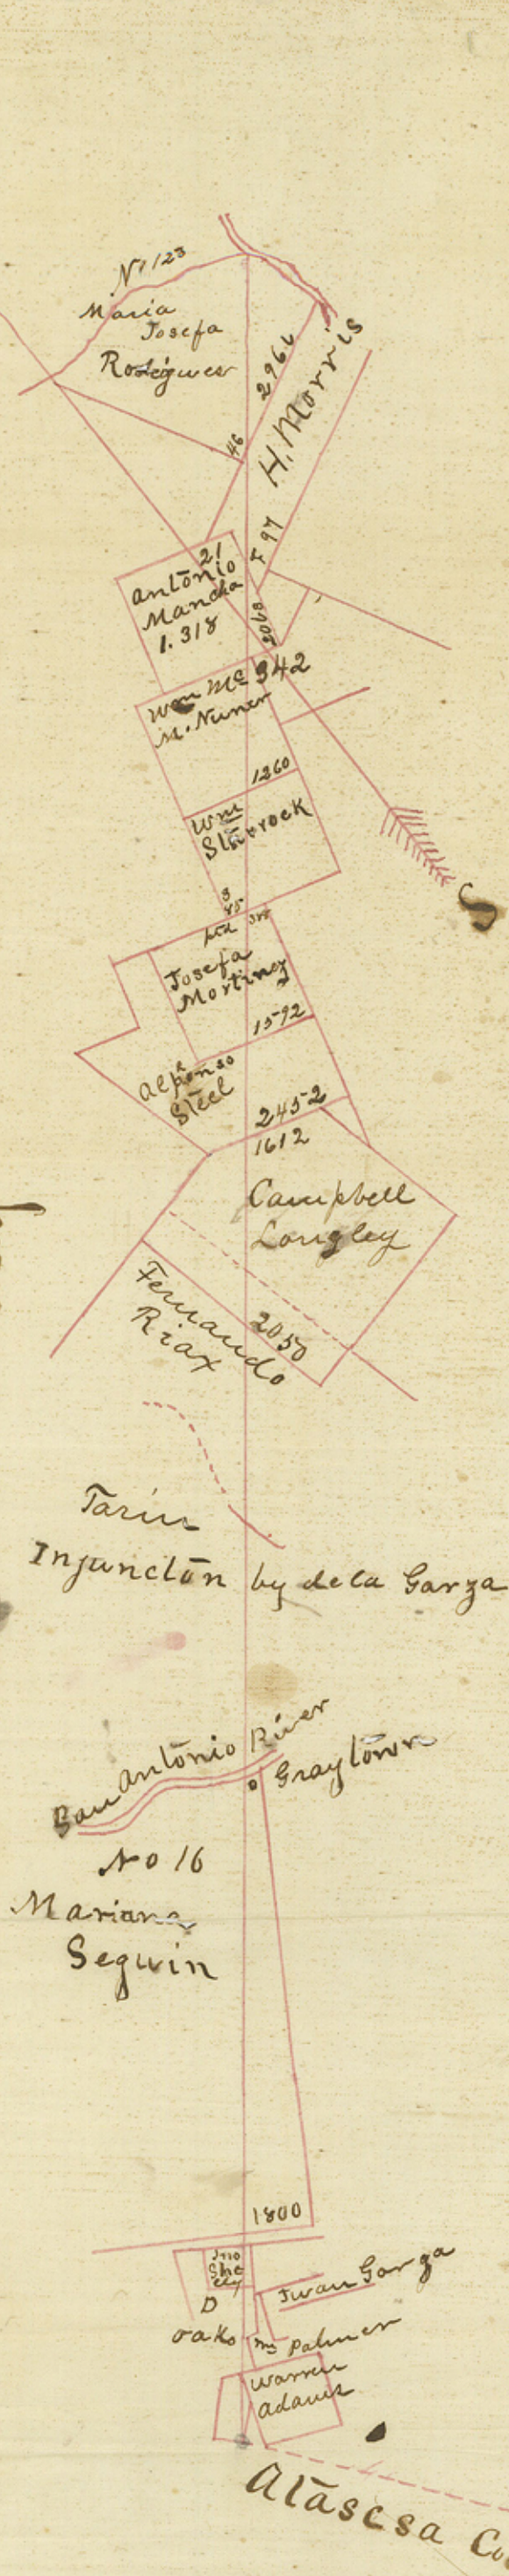 No 123
Maria
Josefa
Rodigues
2966
H. Morris
46
F 97
21
Antonio
Mancha
1.318
2060
342
Wm Mc
M. Nuner
1260
Wm
Starrock
3
45
Josefa
Martinez
1592
Alphonso
Steel
2452
1612
Campbell
Longley
Fernando
Riax
2050
S
Tarin
Injunction by de la Garza
San Antonio River
Graytown
No 16
Mariana
Seguin
1800
Jno
She
ely
D
oaks
Juan Garza
Palmer
Warren
Adams
Atascsa Co